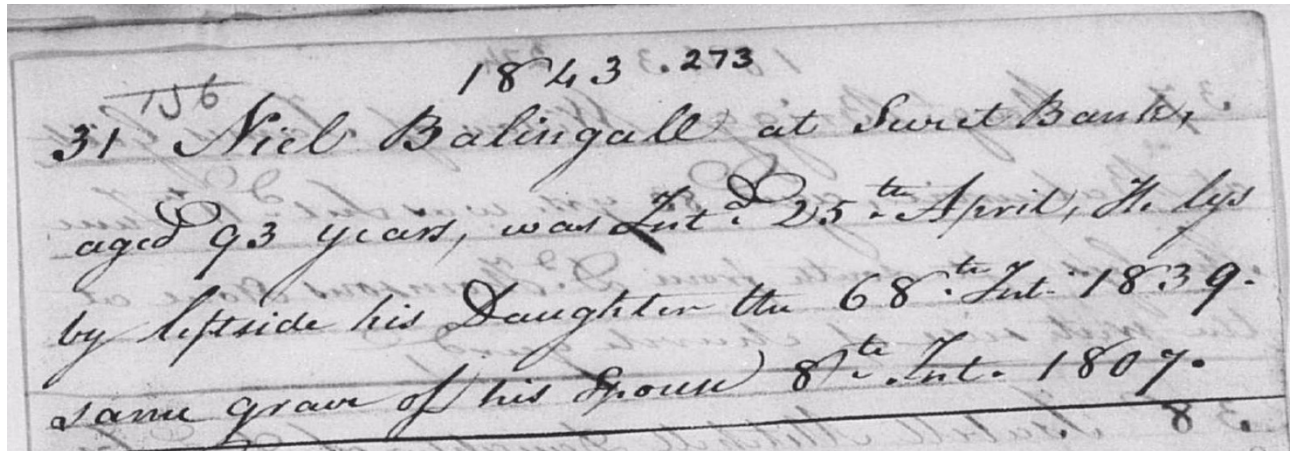 1843. 273
156
31 Niel Balingall at Sweet Bank,
aged 93 years, was Int.d 25.th April, He lys
by leftside his Daughter the 68.th Int. 1839.
same grave of his Spouse 8.th Int. 1807.
8.